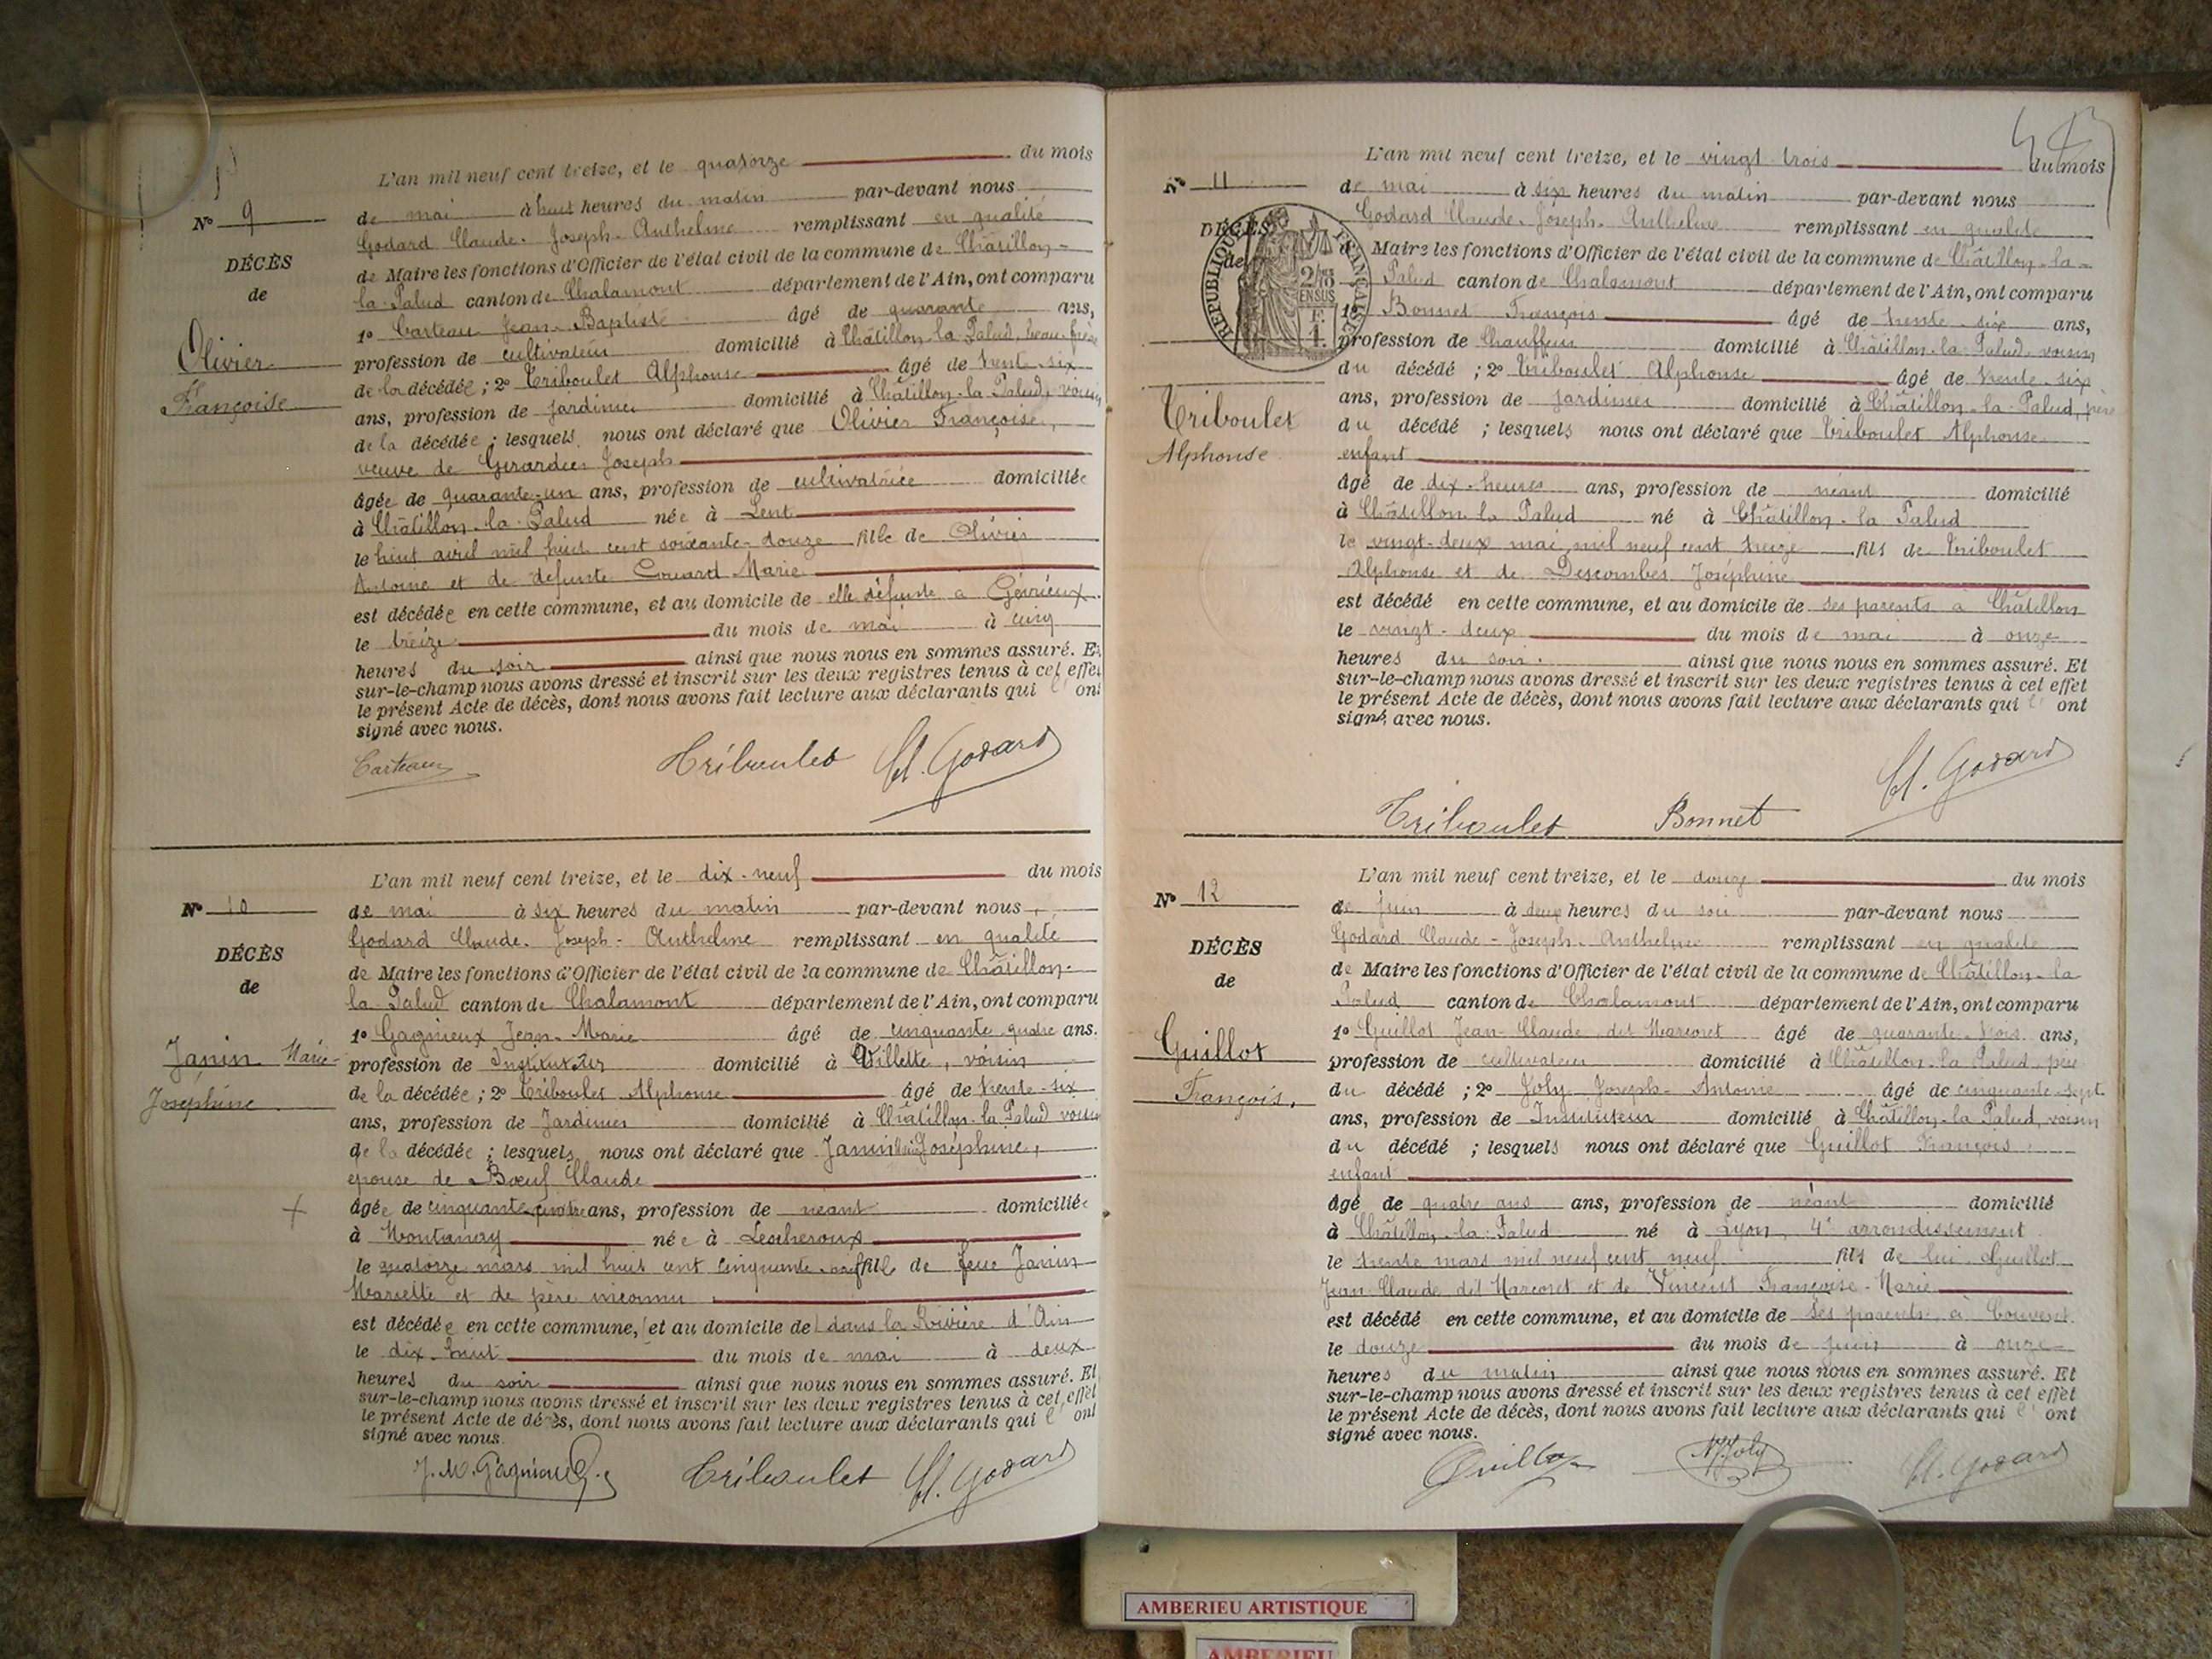 L'an mil neuf cent treize, et le quatorze du mois
Nº 9
de mai à huit heures du matin par-devant nous
Godard Claude-Joseph-Anthelme remplissant en qualité
DÉCÈS
de
de Maire les fonctions d'Officier de l'état civil de la commune de Châtillon-
la-Palud canton de Chalamont département de l'Ain, ont comparu
1º Carteau Jean-Baptiste âgé de quarante ans,
Olivier
Françoise
profession de cultivateur domicilié à Châtillon-la-Palud, beau-frère
de la décédée ; 2º Triboulet Alphonse âgé de trente-six
ans, profession de jardinier domicilié à Châtillon-la-Palud, voisin
de la décédée ; lesquels nous ont déclaré que Olivier Françoise,
veuve de Girardier Joseph
âgée de quarante-un ans, profession de cultivatrice domiciliée
à Châtillon-la-Palud née à Lent
le huit avril mil huit cent soixante-douze fille de Olivier
Antoine et de défunte Marie
est décédée en cette commune, et au domicile de elle défunte à Gévrieux
le treize du mois de mai à cinq
heures du soir ainsi que nous nous en sommes assuré. Et
sur-le-champ nous avons dressé et inscrit sur les deux registres tenus à cet effet
le présent Acte de décès, dont nous avons fait lecture aux déclarants qui ont
signé avec nous.
Carteau Triboulet Cl. Godard
L'an mil neuf cent treize, et le dix-neuf du mois
Nº 10
de mai à six heures du matin par-devant nous
Godard Claude-Joseph-Anthelme remplissant en qualité
DÉCÈS
de
de Maire les fonctions d'Officier de l'état civil de la commune de Châtillon-
la-Palud canton de Chalamont département de l'Ain, ont comparu
1º Gagnieux Jean-Marie âgé de cinquante-quatre ans.
Janin Marie-
Joséphine
profession de Instituteur domicilié à Villette, voisin
de la décédée ; 2º Triboulet Alphonse âgé de trente-six
ans, profession de Jardinier domicilié à Châtillon-la-Palud voisin
de la décédée ; lesquels nous ont déclaré que Janin Marie Joséphine,
épouse de Bœuf Claude
âgée de cinquante-quatre ans, profession de néant domiciliée
à Montanay née à Lescheroux
le quatorze mars mil huit cent cinquante-neuf fille de feue Janin
Mariette et de père inconnu
est décédée en cette commune, et au domicile de dans la Rivière d'Ain
le dix-huit du mois de mai à deux
heures du soir ainsi que nous nous en sommes assuré. Et
sur-le-champ nous avons dressé et inscrit sur les deux registres tenus à cet effet
le présent Acte de décès, dont nous avons fait lecture aux déclarants qui ont
signé avec nous.
J. M. Gagnieux Triboulet Cl. Godard
L'an mil neuf cent treize, et le vingt-trois du mois
Nº 11
de mai à six heures du matin par-devant nous
Godard Claude-Joseph-Anthelme remplissant en qualité
DÉCÈS
de
RÉPUBLIQUE FRANÇAISE
de Maire les fonctions d'Officier de l'état civil de la commune de Châtillon-la-
Palud canton de Chalamont département de l'Ain, ont comparu
1º Bonnet François âgé de trente-six ans,
profession de Chauffeur domicilié à Châtillon-la-Palud voisin
du décédé ; 2º Triboulet Alphonse âgé de trente-six
Triboulet
Alphonse
ans, profession de jardinier domicilié à Châtillon-la-Palud, père
du décédé ; lesquels nous ont déclaré que Triboulet Alphonse
enfant
âgé de dix-heures ans, profession de néant domicilié
à Châtillon-la-Palud né à Châtillon-la-Palud
le vingt-deux mai mil neuf cent treize fils de Triboulet
Alphonse et de Descombes Joséphine
est décédé en cette commune, et au domicile de ses parents à Châtillon
le vingt-deux du mois de mai à onze
heures du soir ainsi que nous nous en sommes assuré. Et
sur-le-champ nous avons dressé et inscrit sur les deux registres tenus à cet effet
le présent Acte de décès, dont nous avons fait lecture aux déclarants qui ont
signé avec nous.
Triboulet Bonnet Cl. Godard
L'an mil neuf cent treize, et le douze du mois
Nº 12
de juin à deux heures du soir par-devant nous
Godard Claude-Joseph-Anthelme remplissant en qualité
DÉCÈS
de
de Maire les fonctions d'Officier de l'état civil de la commune de Châtillon-la
Palud canton de Chalamont département de l'Ain, ont comparu
1º Guillot Jean-Claude dit Marconet âgé de quarante-trois ans,
Guillot
François,
profession de cultivateur domicilié à Châtillon-la-Palud, père
du décédé ; 2º Joly Joseph-Antoine âgé de cinquante-sept
ans, profession de Instituteur domicilié à Châtillon-la-Palud, voisin
du décédé ; lesquels nous ont déclaré que Guillot François
enfant
âgé de quatre ans ans, profession de néant domicilié
à Châtillon-la-Palud né à Lyon, 4e arrondissement
le trente mars mil neuf cent neuf fils de lui Guillot
Jean-Claude dit Marconet et de Vincent Françoise-Marie
est décédé en cette commune, et au domicile de ses parents à
le douze du mois de juin à onze
heures du matin ainsi que nous nous en sommes assuré. Et
sur-le-champ nous avons dressé et inscrit sur les deux registres tenus à cet effet
le présent Acte de décès, dont nous avons fait lecture aux déclarants qui ont
signé avec nous.
Guillot Joly Cl. Godard
AMBERIEU ARTISTIQUE
AMBERIEU